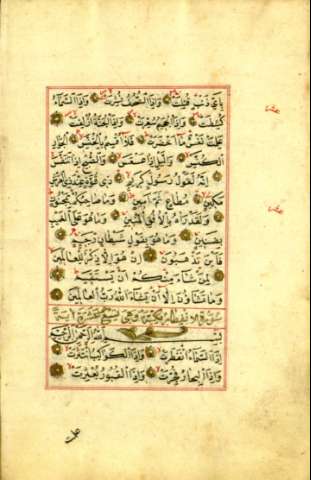 بِأَيِّ ذَنْبٍ قُتِلَتْ وَإِذَا الصُّحُفُ نُشِرَتْ وَإِذَا السَّمَاءُ
كُشِطَتْ وَإِذَا الْجَحِيمُ سُعِّرَتْ وَإِذَا الْجَنَّةُ أُزْلِفَتْ
عَلِمَتْ نَفْسٌ مَا أَحْضَرَتْ فَلَا أُقْسِمُ بِالْخُنَّسِ الْجَوَارِ
الْكُنَّسِ وَاللَّيْلِ إِذَا عَسْعَسَ وَالصُّبْحِ إِذَا تَنَفَّسَ
إِنَّهُ لَقَوْلُ رَسُولٍ كَرِيمٍ ذِي قُوَّةٍ عِنْدَ ذِي الْعَرْشِ
مَكِينٍ مُطَاعٍ ثَمَّ أَمِينٍ وَمَا صَاحِبُكُمْ بِمَجْنُونٍ
وَلَقَدْ رَآهُ بِالْأُفُقِ الْمُبِينِ وَمَا هُوَ عَلَى الْغَيْبِ
بِضَنِينٍ وَمَا هُوَ بِقَوْلِ شَيْطَانٍ رَجِيمٍ
فَأَيْنَ تَذْهَبُونَ إِنْ هُوَ إِلَّا ذِكْرٌ لِلْعَالَمِينَ
لِمَنْ شَاءَ مِنْكُمْ أَنْ يَسْتَقِيمَ
وَمَا تَشَاؤُنَ إِلَّا أَنْ يَشَاءَ اللَّهُ رَبُّ الْعَالَمِينَ
سورة الانفطار مكية وهي تسع عشرة اية
بِسْمِ اللَّهِ الرَّحْمَنِ الرَّحِيمِ
إِذَا السَّمَاءُ انْفَطَرَتْ وَإِذَا الْكَوَاكِبُ انْتَثَرَتْ
وَإِذَا الْبِحَارُ فُجِّرَتْ وَإِذَا الْقُبُورُ بُعْثِرَتْ
علمت